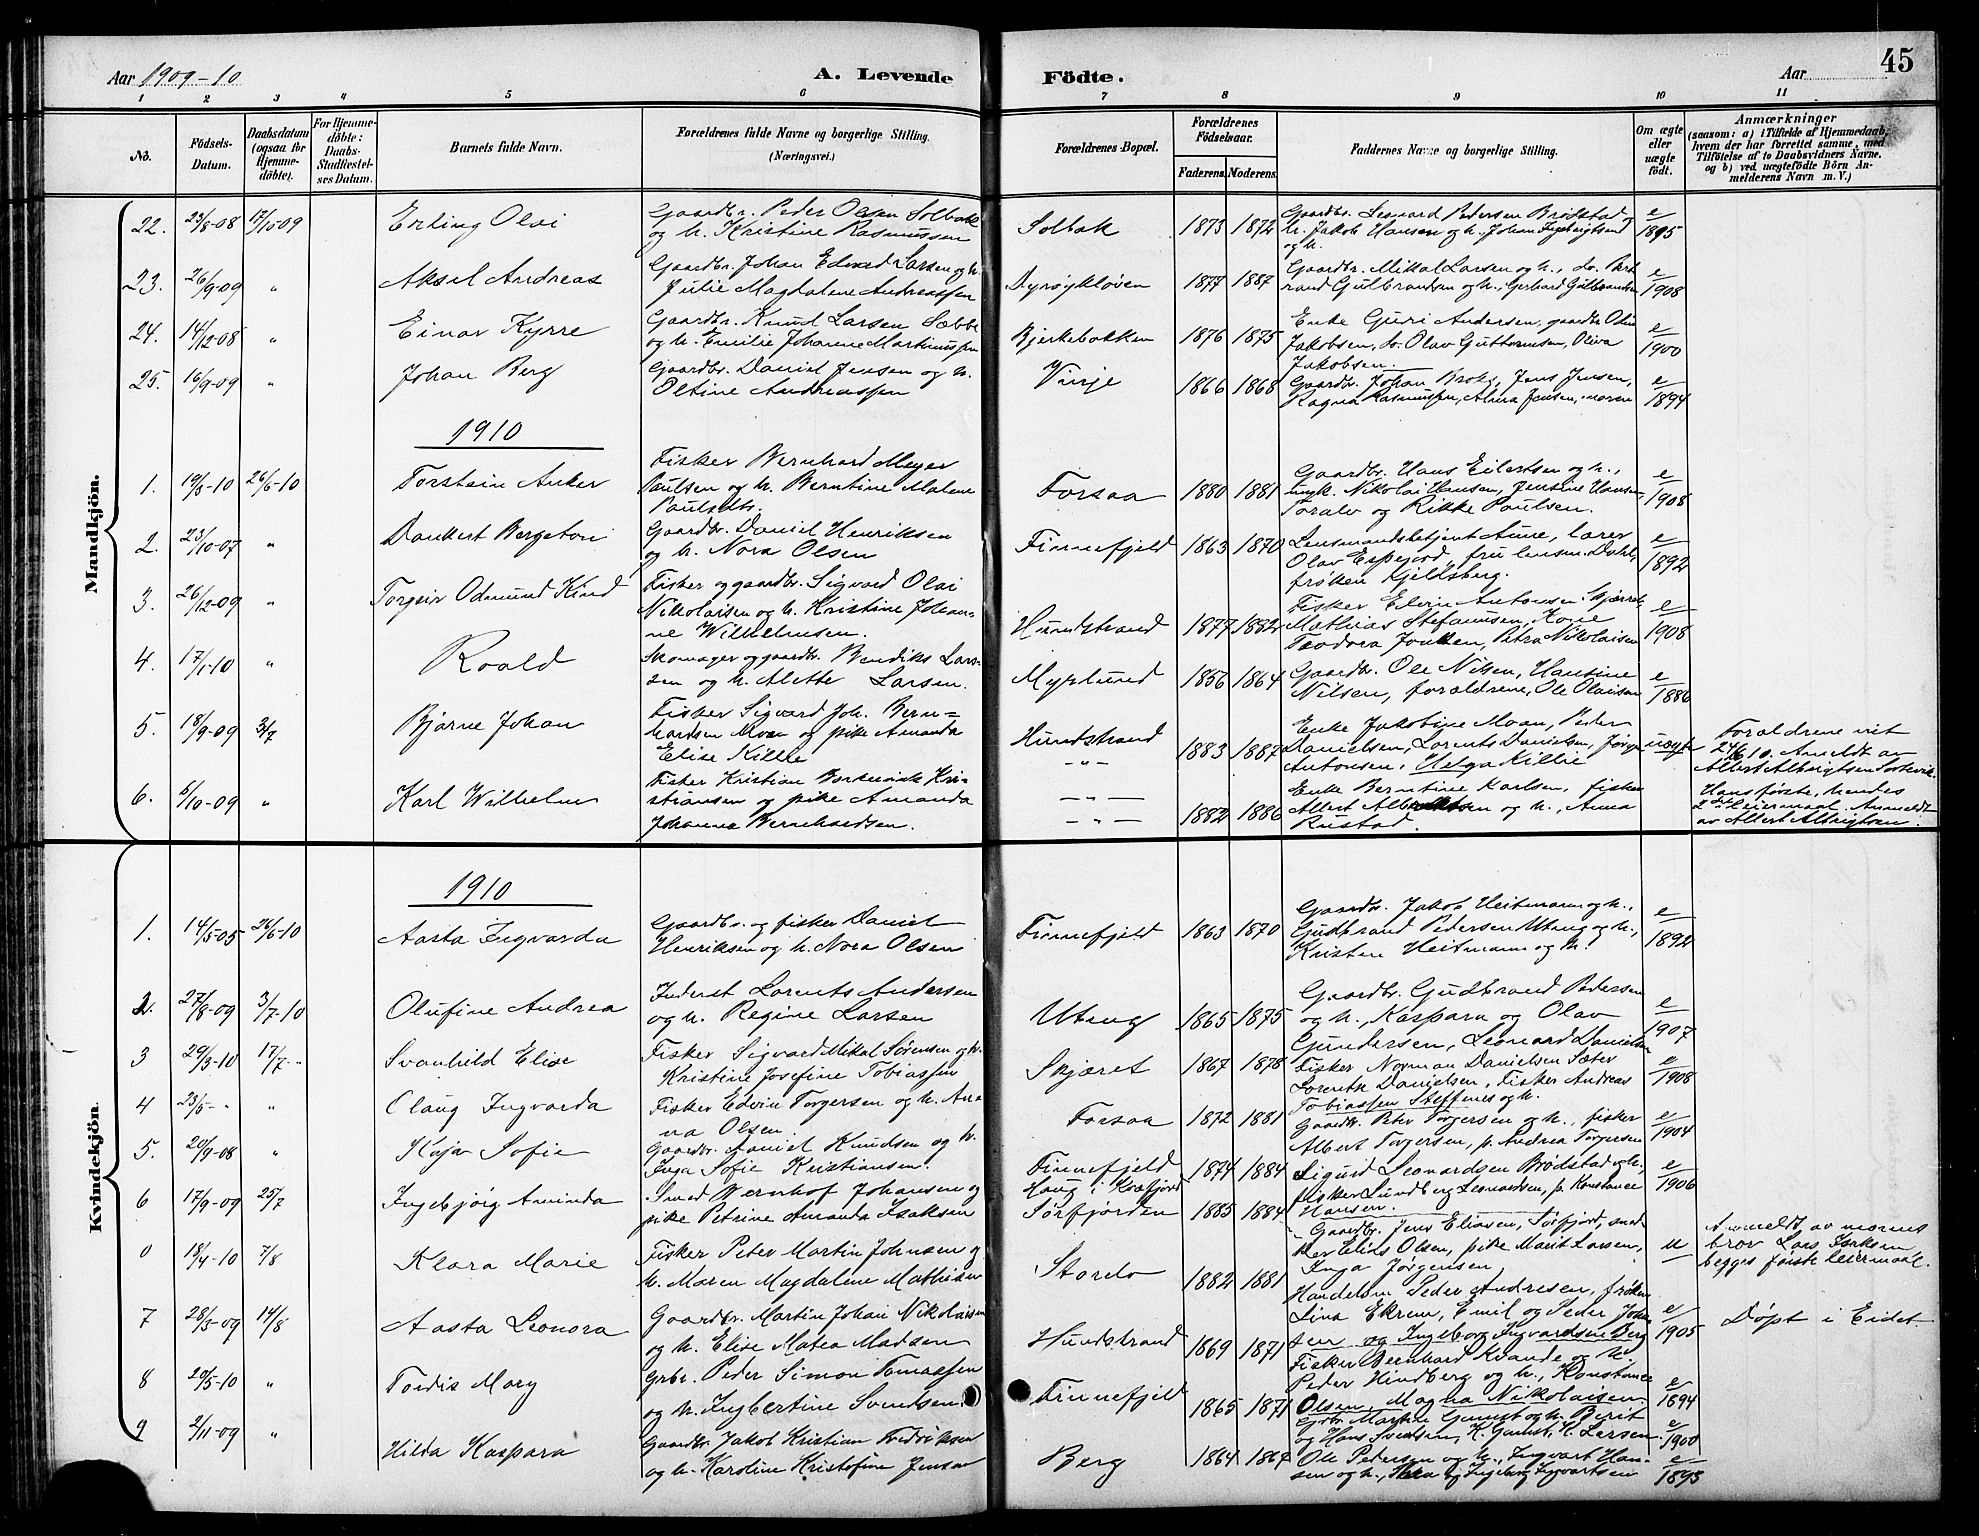 Aar 1909-10
A. Levende
Födte.
Aar
45
1 2 3 4 5 6 7 8 9 10 11
No.
Födsels-Datum.
Daabsdatum (ogsaa for Hjemme-döbte).
For Hjemme-döbte: Daabs-Stadfæstelses Datum.
Barnets fulde Navn.
Forældrenes fulde Navne og borgerlige Stilling. (Næringsvei.)
Forældrenes Bopæl.
Forældrenes Födselsaar.
Faderens. Moderens.
Faddernes Navne og borgerlige Stilling.
Om ægte eller uægte födt.
Anmærkninger
(saasom: a) i Tilfælde af Hjemmedaab, hvem der har forrettet samme, med Tilföielse af to Daabsvidners Navne. og b) ved uægtefödte Börn Anmelderens Navn m. V.)
Mandkjön.
22. 23/8-08 17/10-09 Erling Olai
Gaardbr. Peder Olsen Solbak
og h. Kristine Rasmussen
Solbak 1873 1872
Gaardbr. Leonard Pedersen Brødstad og
h. Jakob Hansen og h. Johan Ingebrigtsen
og h.
e/1895
23. 26/9-09 " Aksel Andreas
Gaardbr. Johan Edvard Larsen og h.
Julie Magdalene Andreassen
Dyrøykløven 1877 1887
Gaardbr. Mikal Larsen og h., Bert-
rand Gulbrandsen og h., Gerhard Gulbrandsen
e/1908
24. 14/12-08 " Einar Kyrre
Gaardbr. Knud Larsen Sæbbe
og h. Emilie Johanne Martinussen
Bjerkebakken 1876 1875
Enke Guri Andersen, gaardbr. Olai
Jakobsen, Olav Guttormsen, Oliva
Jakobsen.
e/1900
25. 16/9-09 " Johan Berg
Gaardbr. Daniel Jensen og h.
Oltine Andreassen
Vinje 1866 1868
Gaardbr. Johan Brok, Jens Jensen,
Ragna Rasmussen, Alma Jensen, moren
e/1894
1910
1. 19/3-10 26/6-10 Torstein Anker
Fisker Bernhard Meyer
Paulsen og h. Berntine Malene
Paulsdtr.
Forsaa 1880 1881
Gaardbr. Hans Eilertsen og h.,
ungk. Nikolai Hansen, Jensine Hansen,
Toralv og Rikke Paulsen.
e/1908
2. 23/10-07 " Dankert Bergeton
Gaardbr. Daniel Henriksen
og h. Nora Olsen
Finnefjeld 1863 1870
Lensmandsbetjent Aune, lærer
Olav Espejord, fru lensm. Dahl,
frøken Kjeldsberg.
e/1892
3. 26/12-09 " Torgeir Odmund Kind
Fisker og gaardbr. Sigvard Olai
Nikolaisen og h. Kristine Johan-
ne Wilhelmsen.
Hundstrand 1877 1882
Fisker Edvin Antonsen Skjærret,
Mathias Stefanusen, Kone
Teodora Jonsen, Petra Nikolaisen
e/1908
4. 17/1-10 " Roald
Skomager og gaardbr. Bendiks Lar-
sen og h. Mette Larsen.
Myrlund 1856 1864
Gaardbr. Ole Nilsen, Hansine
Nilsen, forældrene, Ole Olaisen
e/1886
5. 18/9-09 3/7 Bjarne Johan
Fisker Sigvard Joh. Bern-
hardsen Moan og pike Amanda
Elise Killie
Hundstrand 1883 1887
Enke Jakobine Moan, Peder
Danielsen, Lorents Danielsen, Jørgen
Antonsen, Helga Killie
uægte
Forældrene viet
24/6 10. Anmeldt av
Albert Albrigtsen Sørtevik.
6. 6/10-09 " Karl Wilhelm
Fisker Kristian Kri-
stiansen og pike Amanda
Johanne Bernhardsen.
— " — 1882 1886
Enke Berntine Karlsen, fisker
Albert Albriktsen og h., Anna
Rustad.
Hans første, hendes
2det leiermaal. Anmeldt
av Albert Albrigtsen.
Kvindekjön.
1910
1. 14/5-05 26/6-10 Aasta Ingvarda
Gaardbr. og fisker Daniel
Henriksen og h. Nora Olsen
Finnefjeld 1863 1870
Gaardbr. Jakob Heitmann og h.,
Gudbrand Pedersen Uteng og h.,
Kristen Heitmann og h.
e/1892
2. 27/8-09 3/7-10 Olufine Andrea
Inderst Lorents Andersen
og h. Regine Larsen
Uteng 1865 1875
Gaardbr. Gudbrand Pedersen
og h., Kaspara og Olav
Gundersen, Leonard Danielsen
e/1907
3 29/3-10 17/7- Svanhild Elise
Fisker Sigvard Mikal Sørensen og h.
Kristine Josefine Tobiassen
Skjæret 1867 1878
Fisker Norman Danielsen Sæter
Lorents Danielsen, fisker Andreas
Tobiassen Steffenes og h.
e/1908
4 23/5- " " Olaug Ingvarda
Fisker Edvin Torgersen og h. An-
na Olsen.
Forsaa 1872 1881
Gaardbr. Peter Torgersen og h., fisker
Albert Torgersen, p. Andrea Torgersen
e/1904
5. 20/9-08 " Kaja Sofie
Gaardbr. Daniel Knudsen og h.
Inga Sofie Kristiansen.
Finnefjeld 1874 1884
Sigurd Leonardsen Brødstad og h.,
fisker Lundberg Leonardsen, p. Konstance
Hansen.
e/1906
6 17/9-09 25/7 Ingebjørg Aminda
Smed Bernhof Johansen og
pike Petrine Amanda Isaksen
Haug i Kvæfjord
Sørfjorden 1885 1884
Gaardbr. Jens Eliasen, Sørfjord, snek-
ker Elias Olsen, pike Marit Larsen,
Inga Jørgensen
u
Anmeldt av morens
bror Lars Isaksen
begges første leiermaal.
0 18/4-10 7/8 Klara Marie
Fisker Peter Martin Johnsen og
h. Maren Magdalene Mathisen
Stordo 1882 1881
Handelsm Peder Andresen, frøken
Lina Ekrem, Emil og Peder Johan-
sen og Ingeborg Ingvardsen Berg
e/1905
Døpt i Eidet
7 28/3-09 14/8 Aasta Leonora
Gaardbr. Martin Johan Nikolaisen
og h. Elise Matea Madsen
Hundstrand 1869 1871
Fisker Bernhard Kvande og h.
Peder Hindberg og h., Konstance
Olsen, Magna Nikolaisen
e/1894
8 20/5-10 " Tordis Mary
Grbr. Peder Simon Tomassen
og h. Ingbertine Svendsen.
Finnefjeld 1865 1871
Grbr. Martin Gamst og h. Berit
og Hans Svendsen, K. Gamst, K. Larsen.
e/1900
9 2/11-09 " Hilda Kaspara
Gaardbr. Jakob Kristian Fredriksen
og h. Karoline Kristofine Jensen
Berg 1864 1867
Ole Pedersen og h., Ingvart Han-
sen og h., og Ingeborg Ingvartsen
e/1893